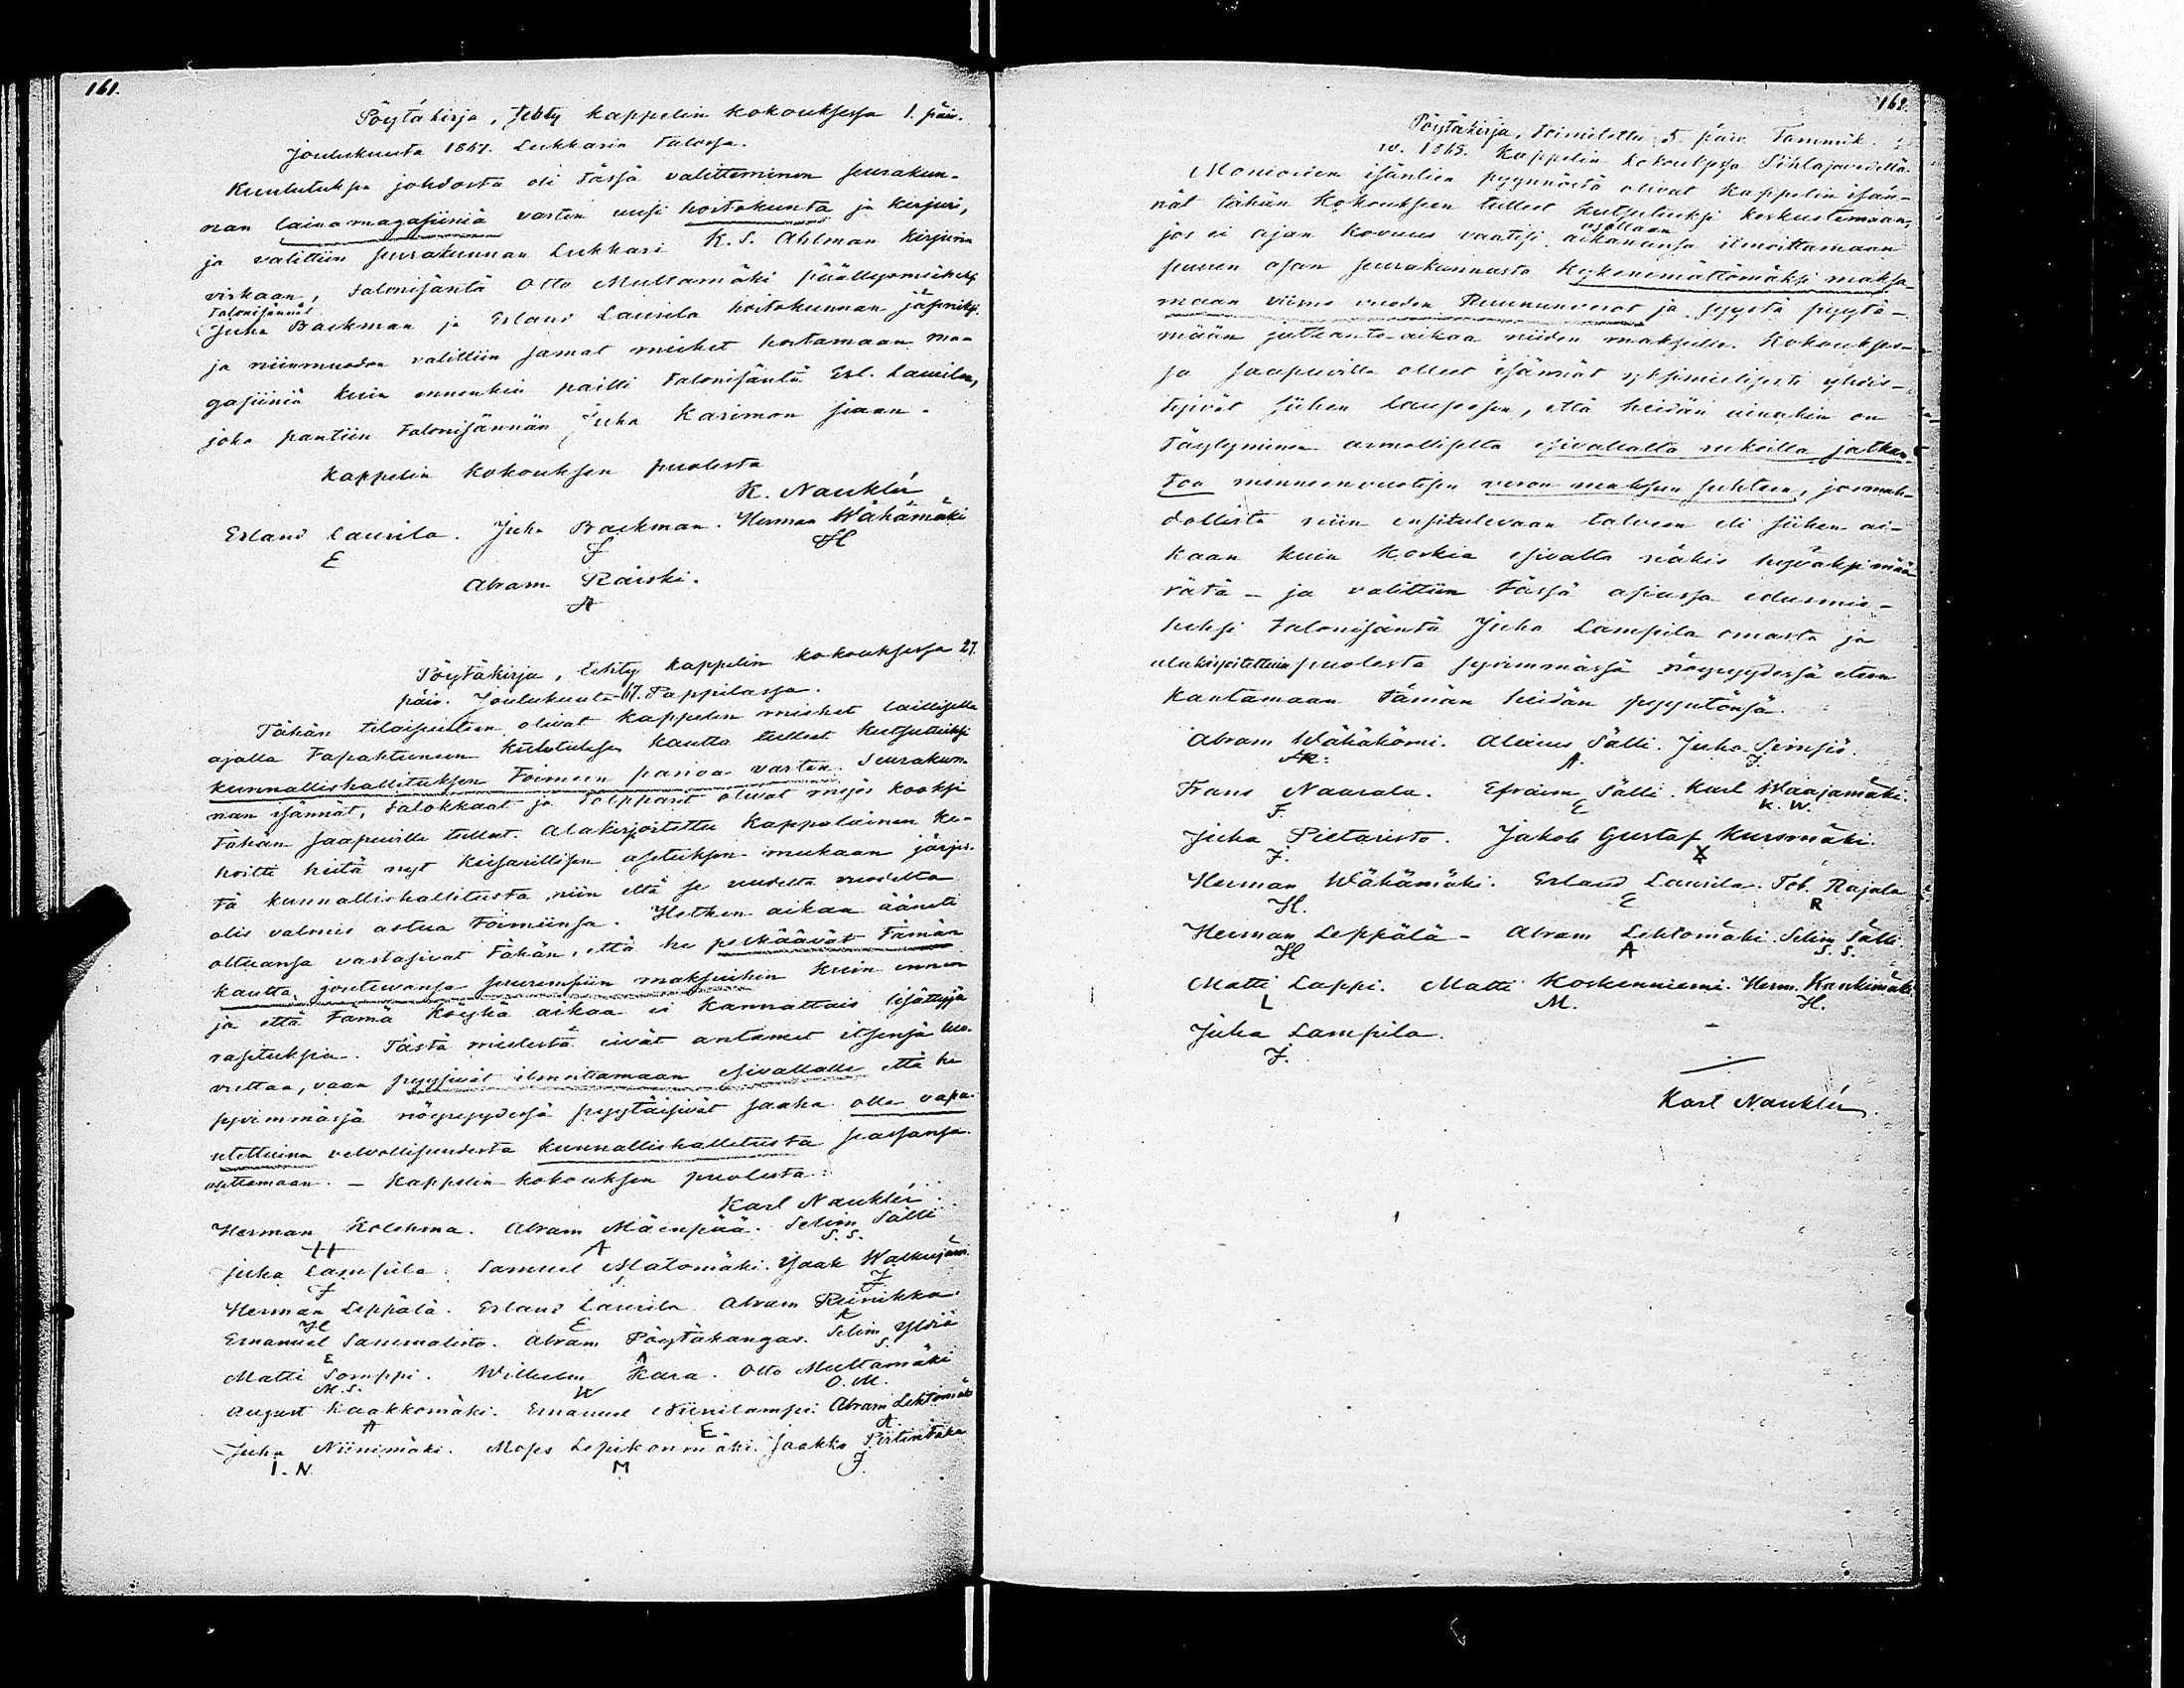 161.
Pöytäkirja, tehty kappelin kokouksesa 1. päiv.
Joulukuuta 1867. Lukkarin talossa.
Kuulutuksen johdosta oli tässä valitteminen seurakun-
nan lainamagasiiniä varten uusi hoitokunta ja kirjuri,
ja valittiin seurakunnan Lukkari K. S. Ahlman kirjurin
virkaan, talonisäntä Otto Multamäki päällysmieheksi
talonisännät
Juha Backman ja Erland Laurila hoitokunnan jäseniksi
ja niinmuodon valittiin samat miehet hoitamaan ma-
gasiiniä kuin ennenkin paitti talonisäntä Erl. Laurila,
joka pantiin talonisännän Juha Karimon siaan.
Kappelin kokouksen puolesta
K. Nauklér
Erland Laurila. Juha Backman. Herman Wähämäki
E J H
Abram Räiski.
A
Pöytäkirja, tehty kappelin kokouksessa 27.
päiv. Joulukuuta -67. Pappilassa.
Tähän tilaisuuteen olivat kappelin miehet laillisella
ajalla tapahtuneen kulutuksen kautta tulleet kutsutuiksi
kunnallishallituksen toimeen panoa varten. Seurakun-
nan isännät, talokkaat ja torpparit olivat myös kooksi
tähän saapuville tulleet. Alakirjoitettu kappalainen ke-
hoitti heitä nyt Keisarillisen asetuksen mukaan järjes-
tä kunnallishallitusta, niin että se uudelta vuodelta
olis valmis astua toimiinsa. Hetken aikaa ääneti
oltuansa vastasivat tähän, että he pelkäävät tämän
kautta joutuvansa suurempiin maksuihin kuin ennen
ja että tämä köyhä aikaa ei kannattais lisättyjä
rasituksia. Tästä mielestä eivät antaneet itsensä luo-
vuttaa, vaan pyysivät ilmoittamaan esivallalle että he
syvimmässä nöyryydessä pyytäisivät saaha olla vapa-
utettuina velvollisuudesta kunnallishallitusta seassansa
asettamaan. - Kappelin kokouksen puolesta:
Karl Nauklér.
Herman Kolehma. Abram Mäenpää. Selim Sälli
H A S. S.
Juha Lampila. Samuel Matomäki. Isaak Walkujärv.
J J
Herman Leppälä. Erland Laurila. Abram Reinikka.
H E
Emanuel Sammalisto. Abram Pöytäkangas. Selim Yliriä
E A S
Matti Somppi. Wilhelm Kara. Otto Multamäki
M. S. W O. M.
August Kaakkomäki. Emanuel Niinilampi. Abram Lehtomäki
A E A
Juha Niinimäki. Moses Lepikonmäki. Jaakko Pirtintaka
I. N. M J.
162.
Pöytäkirja, toimitettu 5. päiv. Tammik.
w. 1868. Kappelin kokouksessa Pihlajavedellä.
Monioiden isäntien pyynnöstä olivat kappelin isän-
nät tähän kokoukseen tulleet kutsutuiksi keskustemaan,
jos ei ajan kovuus vaatisi aikanansa ilmoittamaan
suuren osan seurakunnasta kykenemättömäksi maksa-
maan viime vuoden Ruununverot ja syystä pyytä-
mään jatkanto-aikaa niiden maksulle. Kokoukses-
sa saapuvilla olleet isännät yksimielisesti yhdis-
tysivät siihen lauseesen, että heidän ainakin on
täytyminen armolliselta esivallalta rukoilla jatkan-
toa menneenvuotisen veron maksun suhteen, jos mah-
dollista niin ensitulevaan talveen eli siihen ai-
kaan kuin korkia esivalta näkis hyväksi mää-
rätä - ja valittiin tässä asiassa edusmie-
heksi talonisäntä Juha Lampila omasta ja
alakirjoitettuin puolesta syvimmässä nöyryydessä eteen
kantamaan tämän heidän pyyntönsä.
Abram Wähäkömi. Alexius Sälli. Juha Seinjö.
A. J.
Frans Naarala. Efraim Sälli. Karl Waajamäki.
F. E K. W.
Juha Pietaristo. Jakob Gustaf Kursmäki.
J. X
Herman Wähämäki. Erland Laurila. Tob. Rajala
H. E R
Herman Leppälä - Abram Lehtomäki. Selim Sälli.
H A S. S.
Matti Lappi. Matti Koskenniemi. Herm. Kankimäki.
L M. H.
Juha Lampila.
J.
Karl Nauklér.